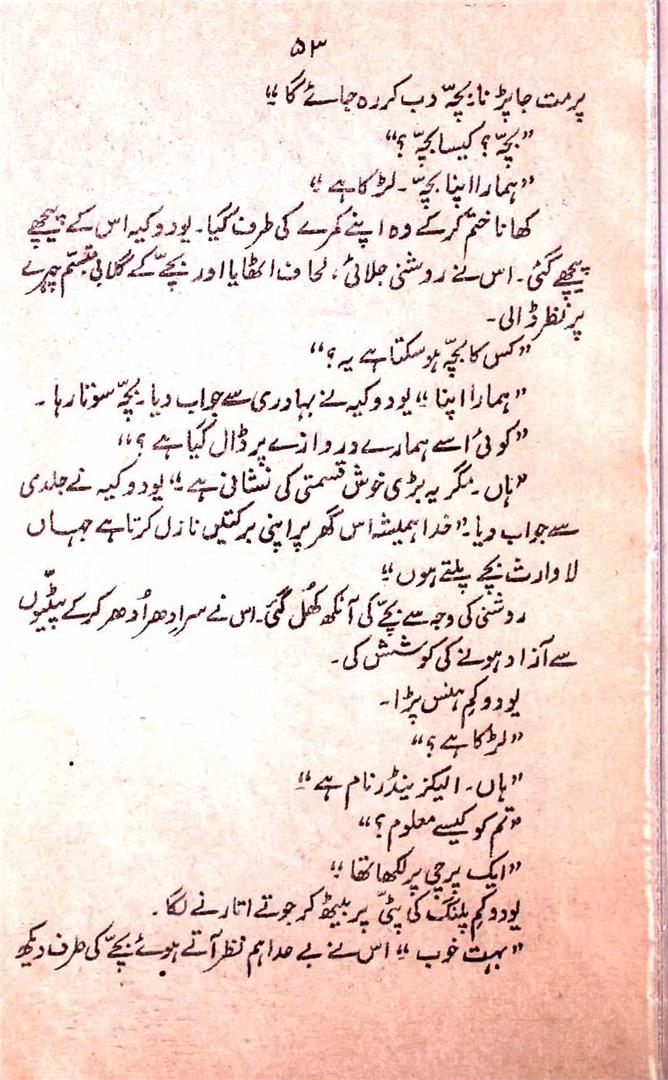 ۵۳
پر مت جا پڑنا۔ بچّہ دب کر رہ جائے گا“
”بچّہ؟ کیسا بچّہ؟“
”ہمارا اپنا بچّہ۔ لڑکا ہے“
کھانا ختم کر کے وہ اپنے کمرے کی طرف گیا۔ یودوکیہ اس کے پیچھے
پیچھے گئی۔ اس نے روشنی جلائی، لحاف اٹھایا اور بچّے کے گلابی متبسّم چہرے
پر نظر ڈالی۔
”کس کا بچّہ ہو سکتا ہے یہ؟“
”ہمارا اپنا“ یودوکیہ نے بہادری سے جواب دیا۔ بچّہ سوتا رہا۔
”کوئی اسے ہمارے دروازے پر ڈال گیا ہے؟“
”ہاں۔ مگر یہ بڑی خوش قسمتی کی نشانی ہے“ یودوکیہ نے جلدی
سے جواب دیا۔ ”خدا ہمیشہ اس گھر پر اپنی برکتیں نازل کرتا ہے جہاں
لاوارث بچے پلتے ہوں“
روشنی کی وجہ سے بچّے کی آنکھ کھُل گئی۔ اس نے سر ادھر اُدھر کر کے پٹّیوں
سے آزاد ہونے کی کوشش کی۔
یودوکم ہنس پڑا۔
”لڑکا ہے؟“
”ہاں۔ الیکزینڈر نام ہے“
”تم کو کیسے معلوم؟“
”ایک پرچی پر لکھا تھا“
یودوکم پلنگ کی پٹّی پر بیٹھ کر جوتے اتارنے لگا۔
”بہت خوب“ اس نے بے حد اہم نظر آتے ہوئے بچّے کی طرف دیکھ